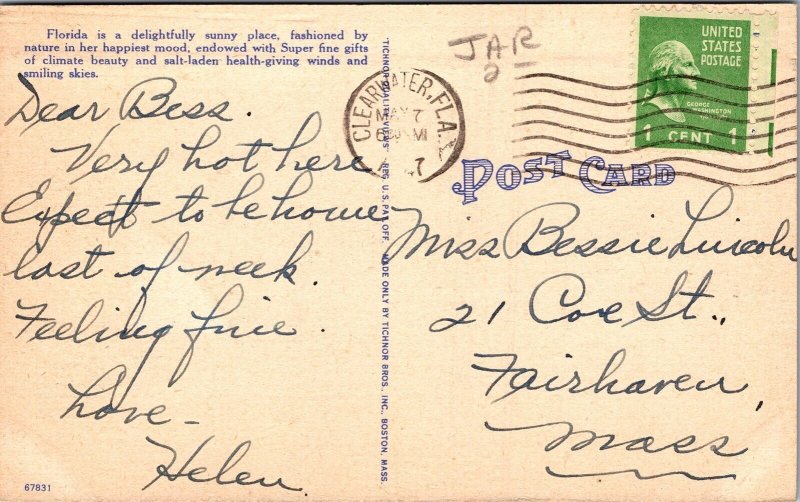 Florida is a delightfully sunny place, fashioned by
nature in her happiest mood, endowed with Super fine gifts
of climate beauty and salt-laden health-giving winds and
smiling skies.
Dear Bess.
Very hot here
Expect to be home
last of week.
Feeling fine.
Love-
Helen.
67831
"TICHNOR QUALITY VIEWS" REG. U. S. PAT. OFF. MADE ONLY BY TICHNOR BROS., INC., BOSTON, MASS.
JAR
CLEARWATER, FLA.
MAY 7
POST CARD
UNITED
STATES
POSTAGE
GEORGE
WASHINGTON
1 CENT 1
Miss Bessie Lincoln
21 Coe St.,
Fairhaven,
Mass